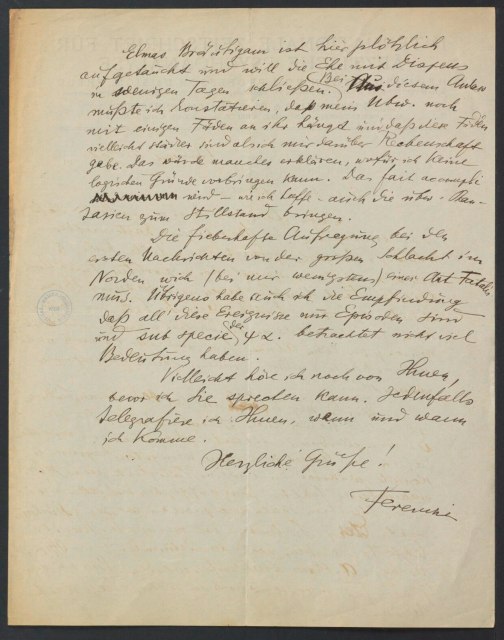 Elmas Bräutigam ist hier plötzlich
aufgetaucht und will die Ehe mit Dispens
in wenigen Tagen schließen. Bei diesem Anlass
mußte ich konstatieren, daß mein Ubw. noch
mit einigen Fäden an ihr hängt und daß diese Fäden
vielleicht stärker sind als ich mir darüber Rechenschaft
gebe. Das würde manches erklären, wofür ich keine
logischen Gründe vorbringen kann. Das fait accompli
wird – wie ich hoffe – auch die übr. Phan-
tasien zum Stillstand bringen.
Die fieberhafte Aufregung bei den
ersten Nachrichten von der großen Schlacht im
Norden wich (bei mir wenigstens) einer Art Fatalis-
mus. Übrigens habe auch ich die Empfindung
daß all' diese Ereignisse nur Episoden sind
und sub specie der betrachtet nicht viel
Bedeutung haben.
Vielleicht höre ich noch von Ihnen,
bevor ich Sie sprechen kann. Jedenfalls
telegrafiere ich Ihnen, wenn und wann
ich komme.
Herzliche Grüße!
Ferenczi